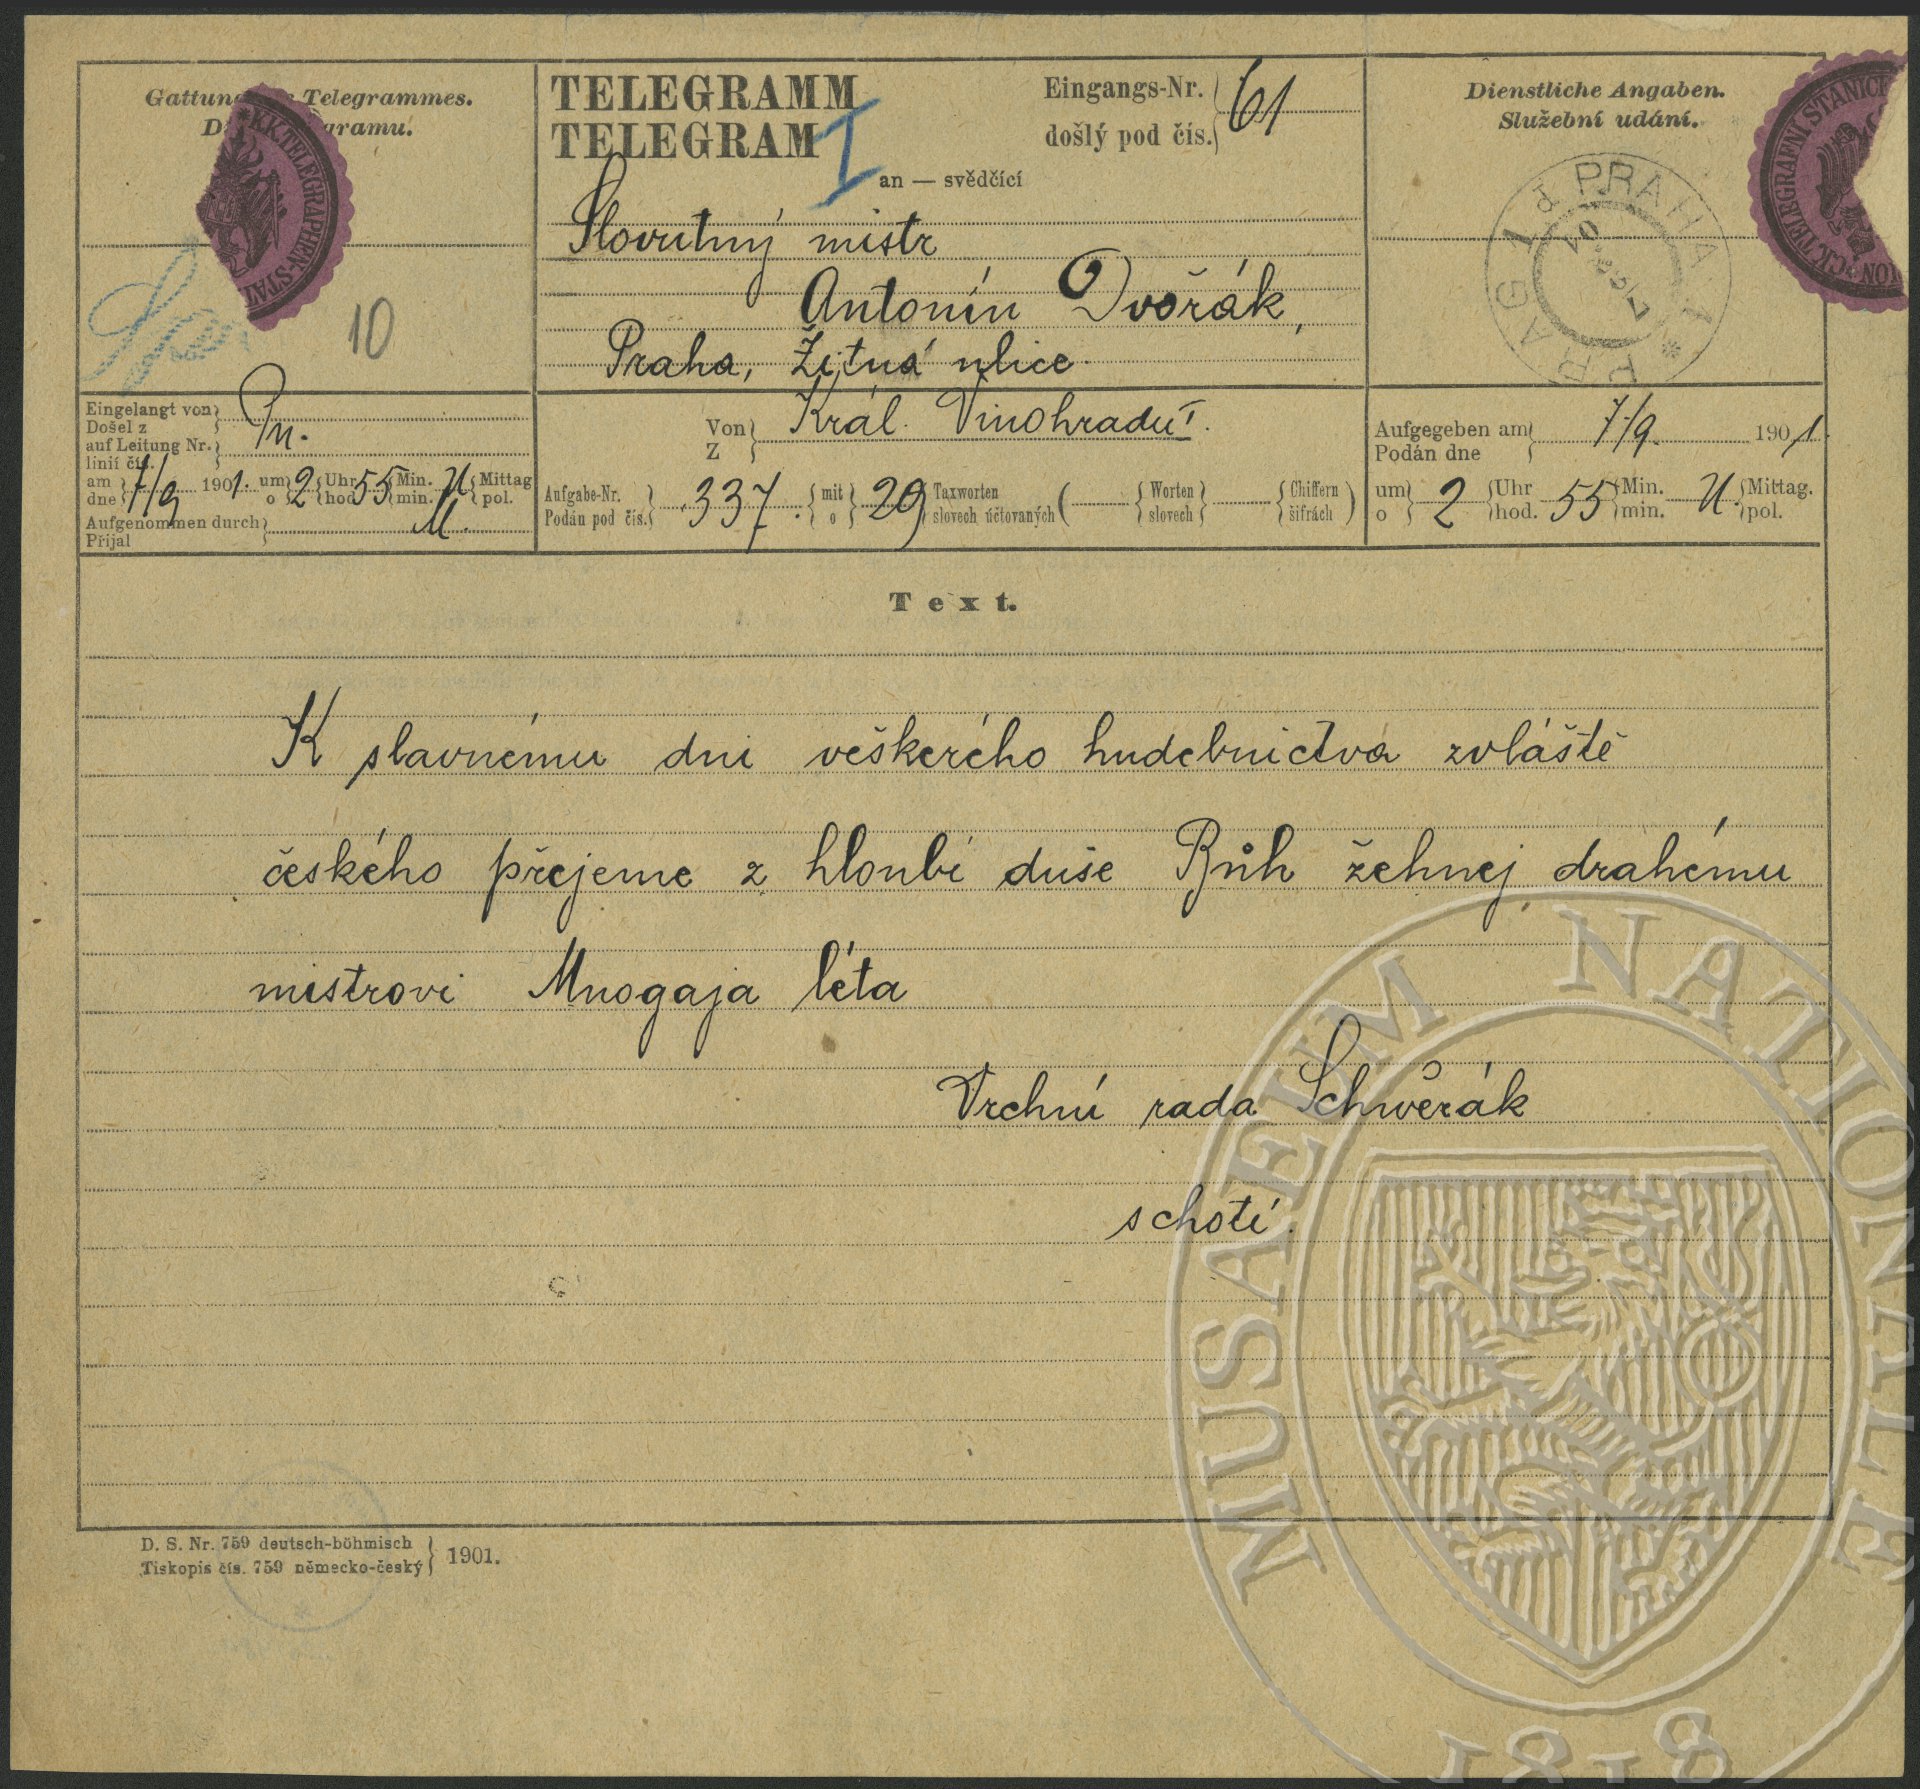 Gattung Telegrammes.
gramu.
TELEGRAMM
TELEGRAM
I
an — svědčící
Eingangs-Nr.
došlý pod čís.
61
Dienstliche Angaben.
Služební udání.
K.K. TELEGRAPHEN-STAT
CK. TELEGRAFNÍ STANICE
ION
PRAHA 1 * PRAG 1
Slovutný mistr
Antonín Dvořák,
Praha, Žitná ulice.
10
Eingelangt von
Došel z
auf Leitung Nr.
linií čís.
Pn.
am
dne 7/9 1901. um
o 2 Uhr
hod. 55 Min.
min. U Mittag
pol.
Aufgenommen durch
Přijal
M.
Von
Z Král. Vinohradů I.
Aufgabe-Nr.
Podán pod čís. 337. mit
o 29 Taxworten
slovech účtovaných ( — Worten
slovech — Chiffern
šifrách )
Aufgegeben am
Podán dne 7/9. 1901.
um
o 2 Uhr
hod. 55 Min.
min. U. Mittag.
pol.
Text.
K slavnému dni veškerého hudebnictva zvláště
českého přejeme z hloubi duše Bůh žehnej drahému
mistrovi Mnogaja léta
Vrchní rada Schwěrák
s chotí.
D. S. Nr. 759 deutsch-böhmisch
Tiskopis čís. 759 německo-český
1901.
MUSAEUM NATIONALE
1818